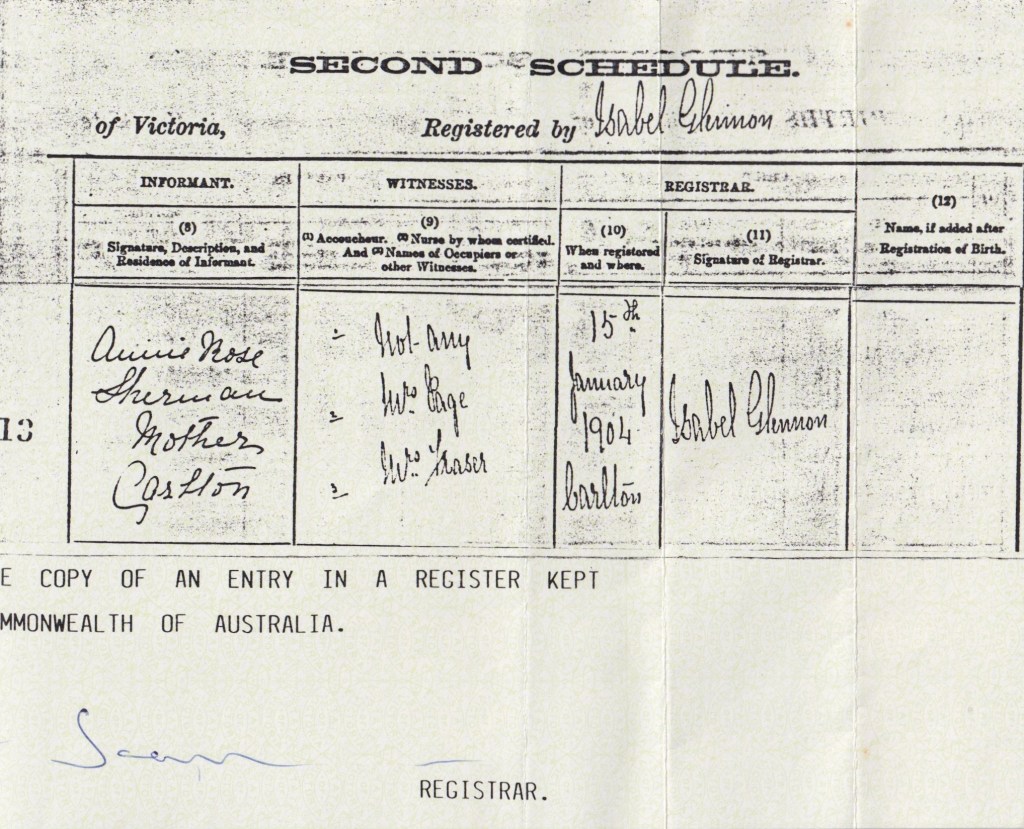 SECOND SCHEDULE.
of Victoria, Registered by Isabel Glennon
INFORMANT. WITNESSES. REGISTRAR.
(8)
Signature, Description, and
Residence of Informant.
(9)
(1) Accoucheur. (2) Nurse by whom certified.
And (3) Names of Occupiers or
other Witnesses.
(10)
When registered
and where.
(11)
Signature of Registrar.
(12)
Name, if added after
Registration of Birth.
13
Annie Rose
Sherman
Mother
Carlton
1 Not any
2 Mrs. Page
3 Mrs. Fraser
15th
January
1904
Carlton
Isabel Glennon
E COPY OF AN ENTRY IN A REGISTER KEPT
MMONWEALTH OF AUSTRALIA.
REGISTRAR.